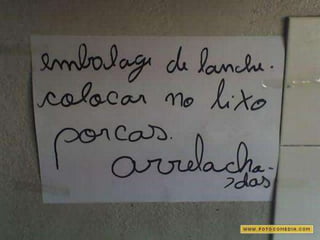 embalage de lanche.
colocar no lixo
porcas.
arrelacha-
das
WWW.FOTOCOMEDIA.COM